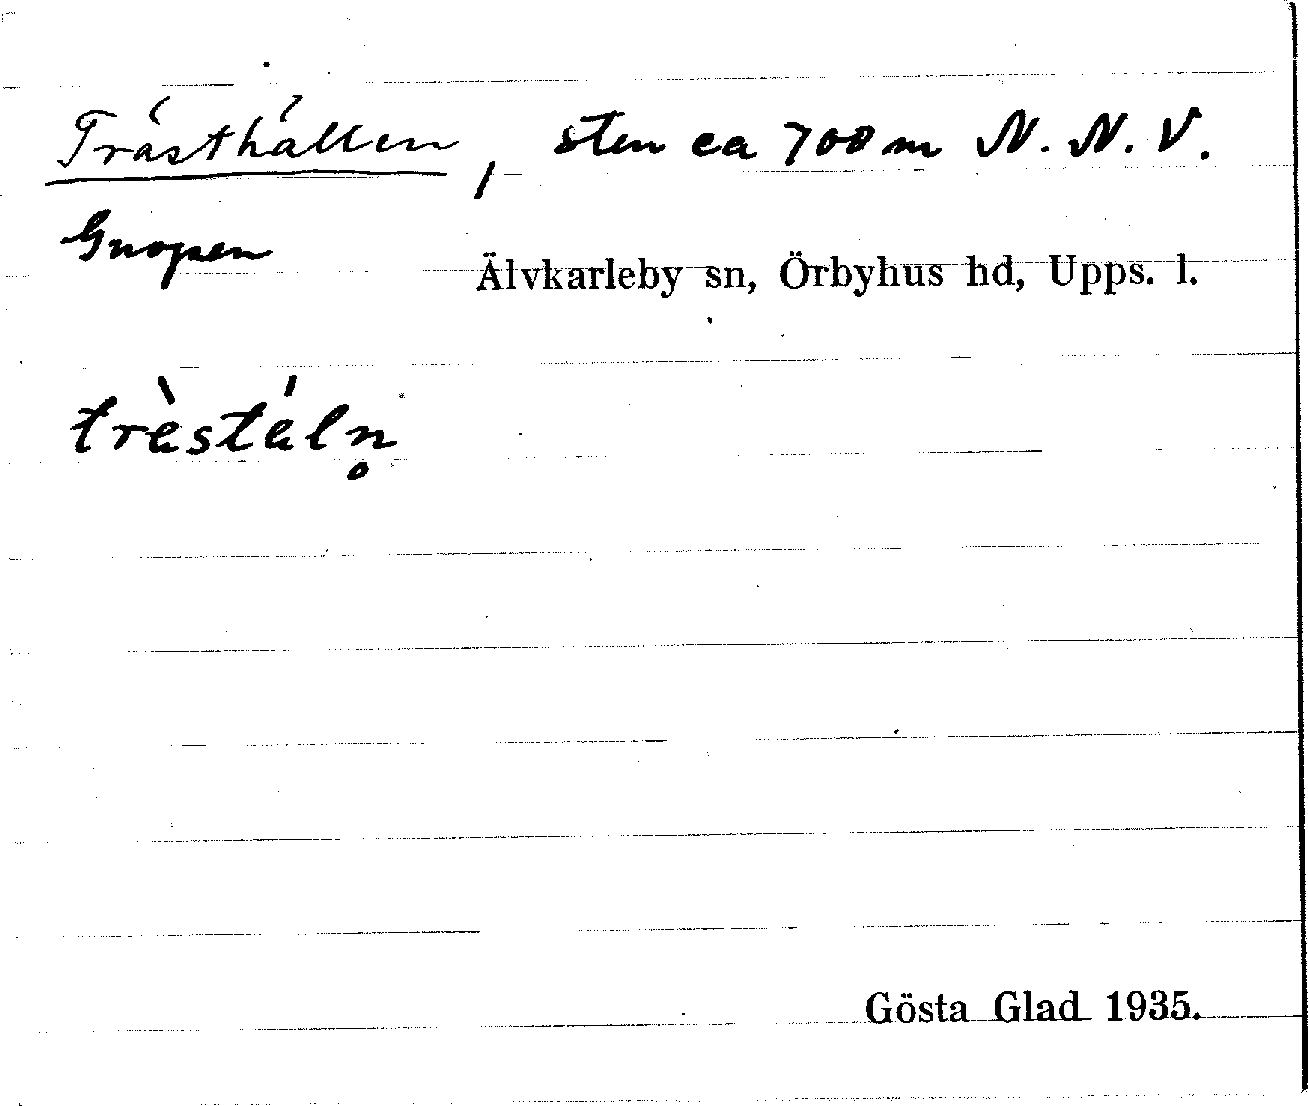 Trästhällen, sten ca 700 m N.N.V.
Gnopen
Älvkarleby sn, Örbyhus hd, Upps. l.
Gösta Glad 1935.